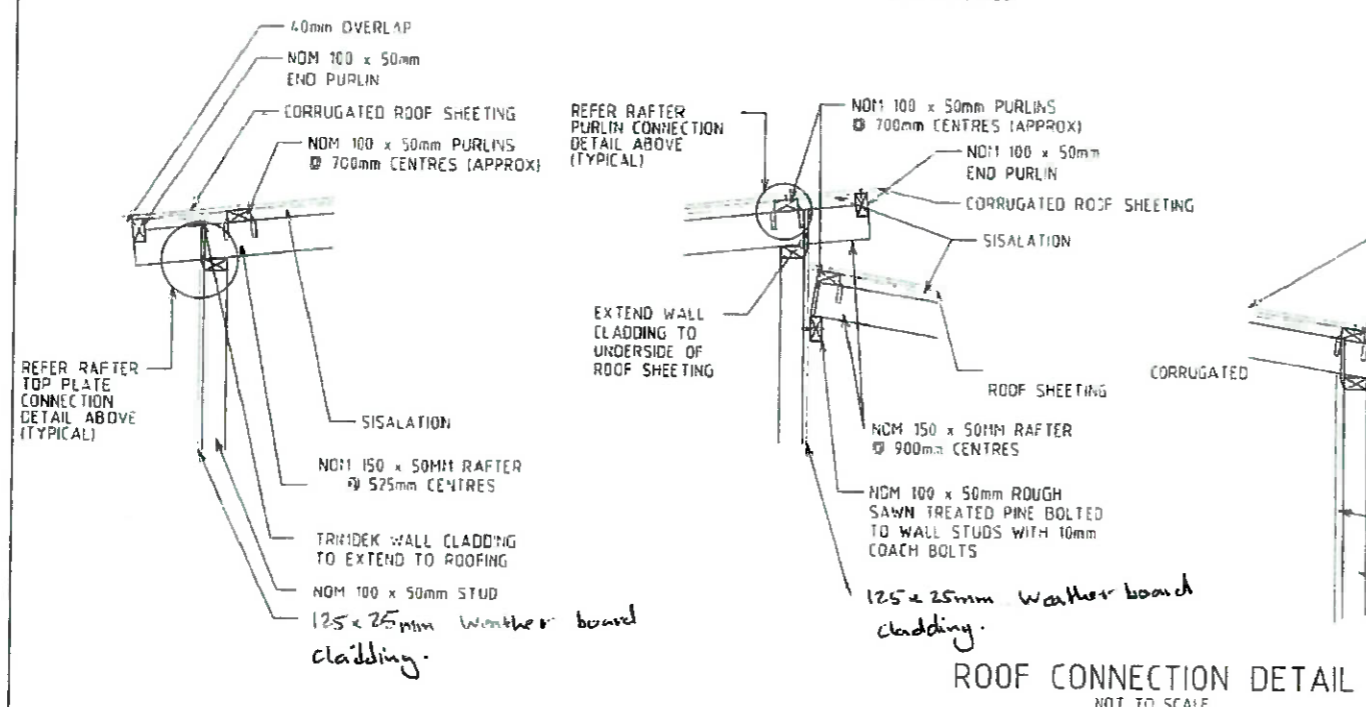 40mm OVERLAP
NOM 100 x 50mm
END PURLIN
CORRUGATED ROOF SHEETING
NOM 100 x 50mm PURLINS
@ 700mm CENTRES (APPROX)
REFER RAFTER
TOP PLATE
CONNECTION
DETAIL ABOVE
(TYPICAL)
SISALATION
NOM 150 x 50MM RAFTER
@ 525mm CENTRES
TRIMDEK WALL CLADDING
TO EXTEND TO ROOFING
NOM 100 x 50mm STUD
125 x 25mm Weather board
cladding.
REFER RAFTER
PURLIN CONNECTION
DETAIL ABOVE
(TYPICAL)
NOM 100 x 50mm PURLINS
@ 700mm CENTRES (APPROX)
NOM 100 x 50mm
END PURLIN
CORRUGATED ROOF SHEETING
SISALATION
EXTEND WALL
CLADDING TO
UNDERSIDE OF
ROOF SHEETING
ROOF SHEETING
NOM 150 x 50MM RAFTER
@ 900mm CENTRES
NOM 100 x 50mm ROUGH
SAWN TREATED PINE BOLTED
TO WALL STUDS WITH 10mm
COACH BOLTS
125 x 25mm Weather board
cladding.
CORRUGATED
ROOF CONNECTION DETAIL
NOT TO SCALE